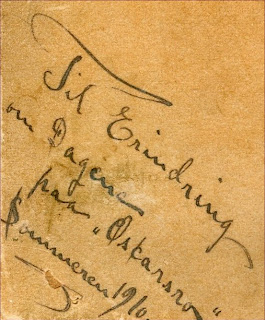 Til Erindring
om Dagene
paa „Oskarsro"
Sommeren 1910.